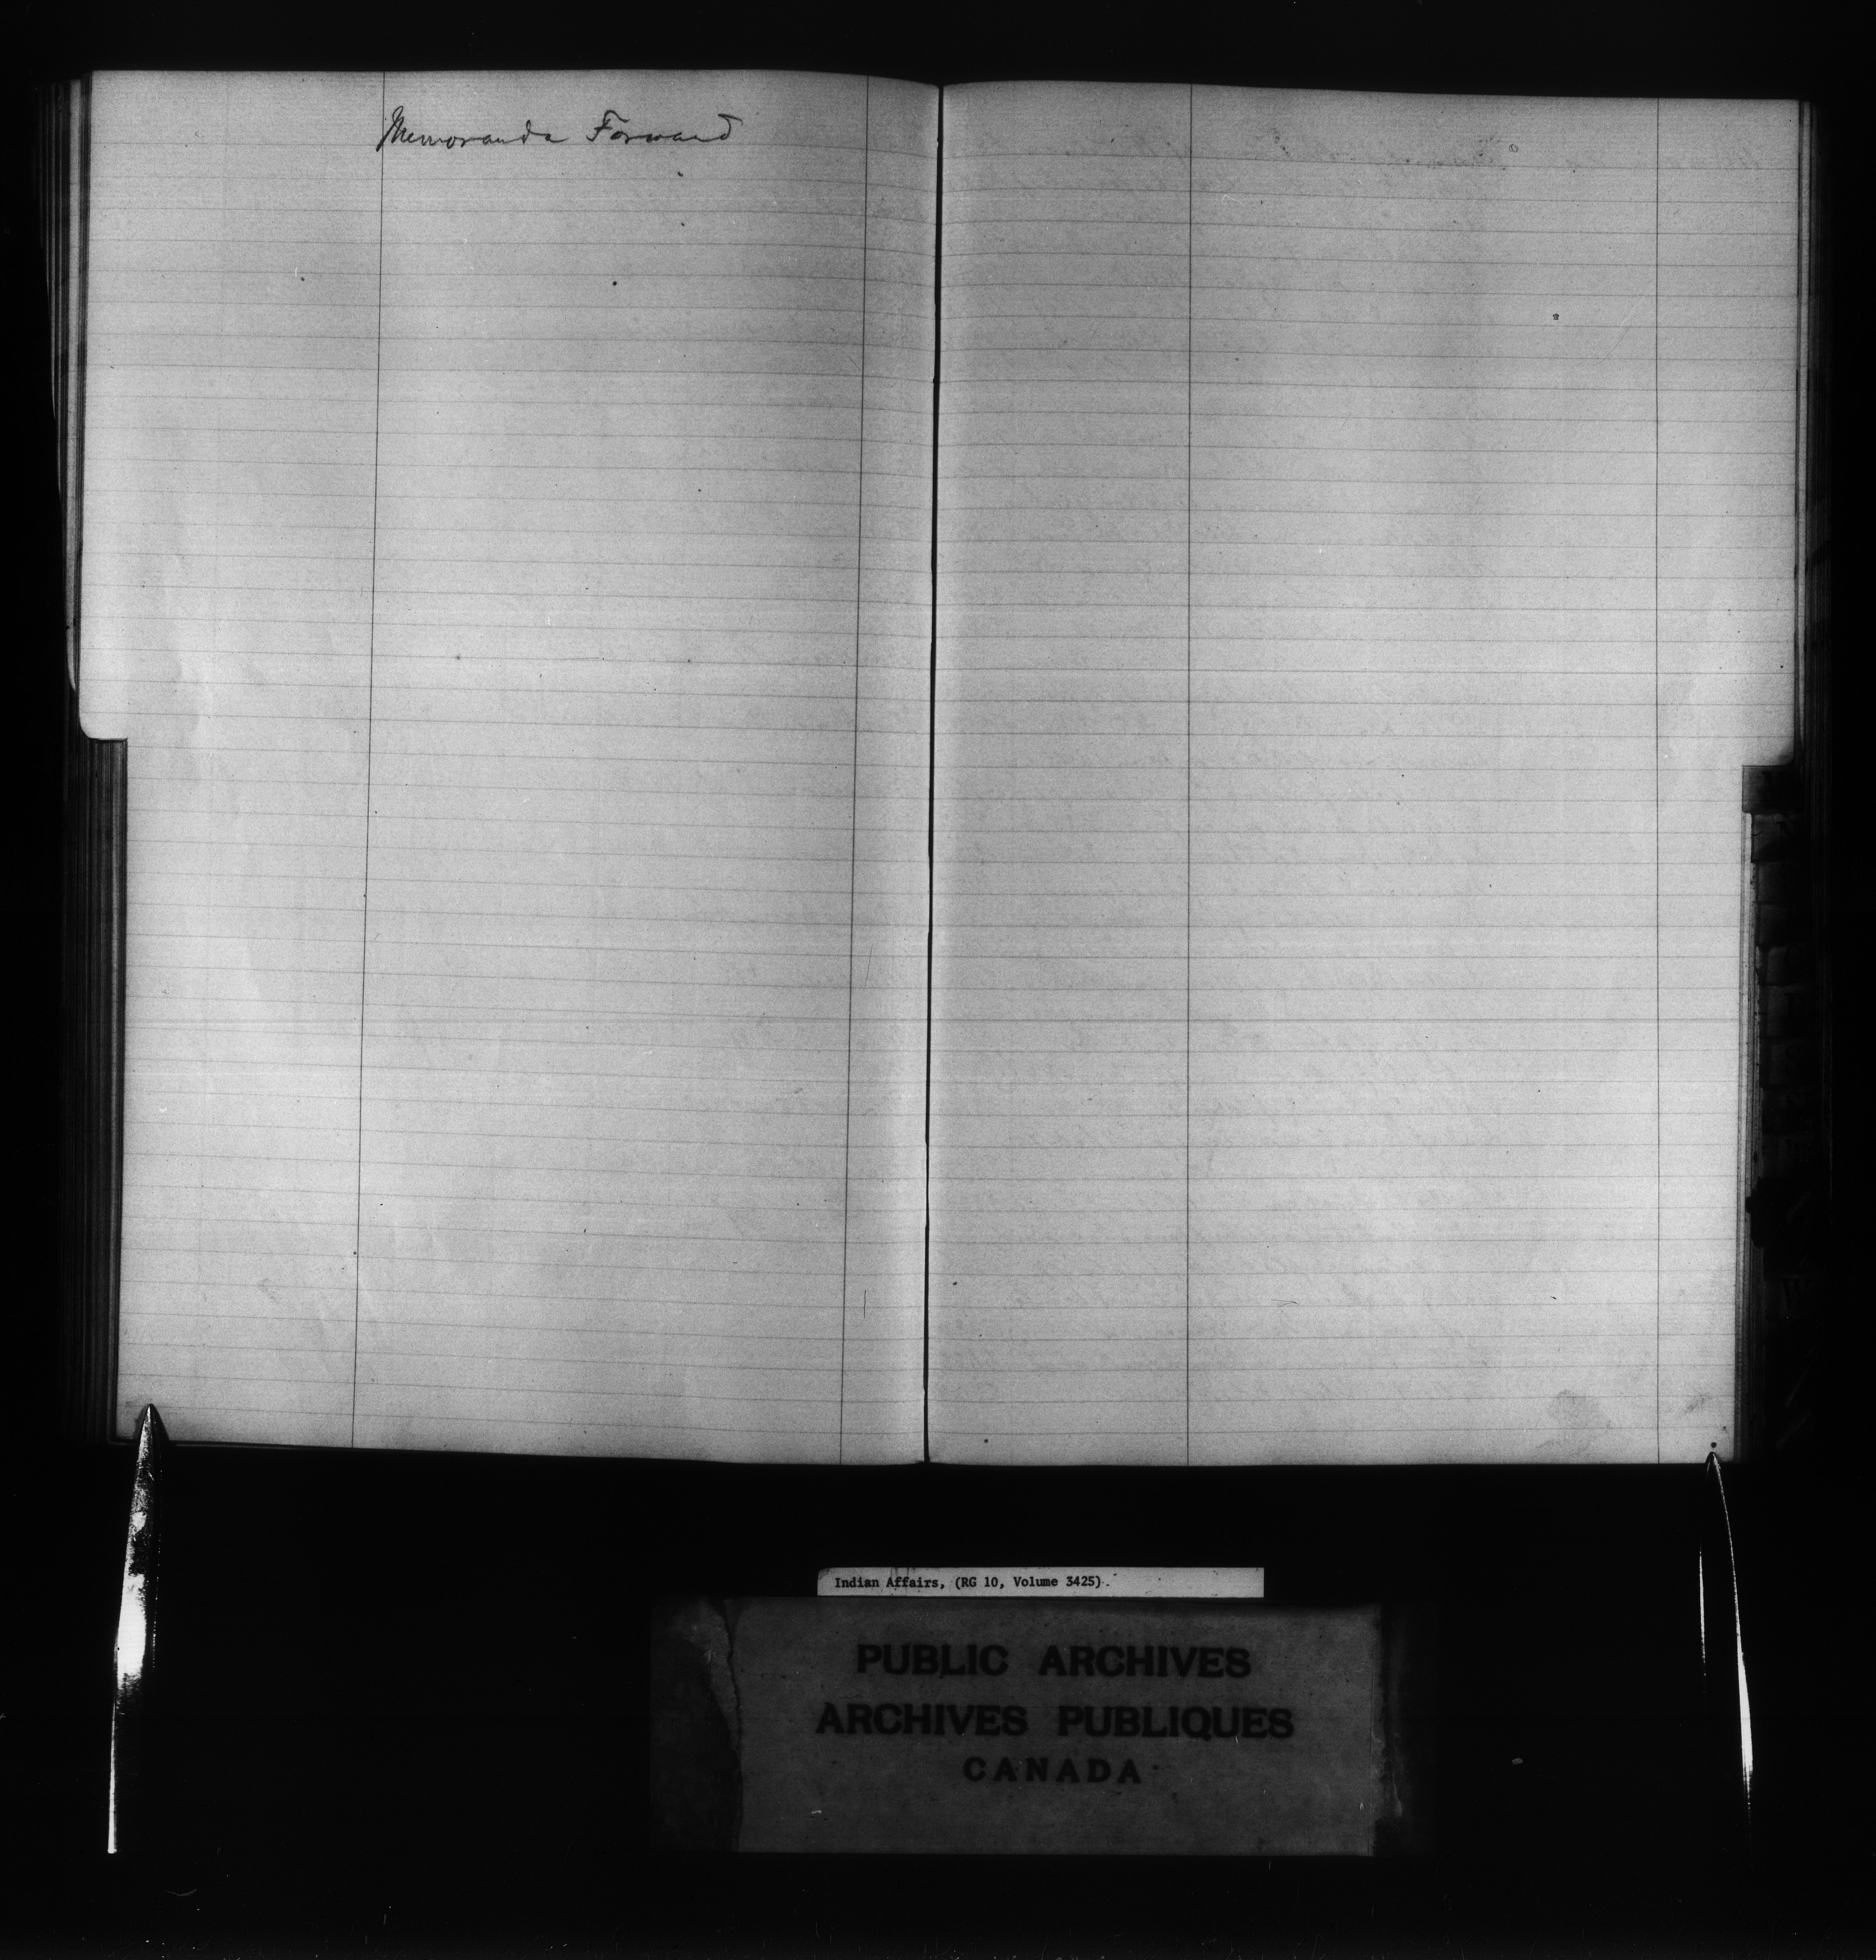 Memoranda Forward
Indian Affairs, (RG 10, Volume 3425).
PUBLIC ARCHIVES
ARCHIVES PUBLIQUES
CANADA